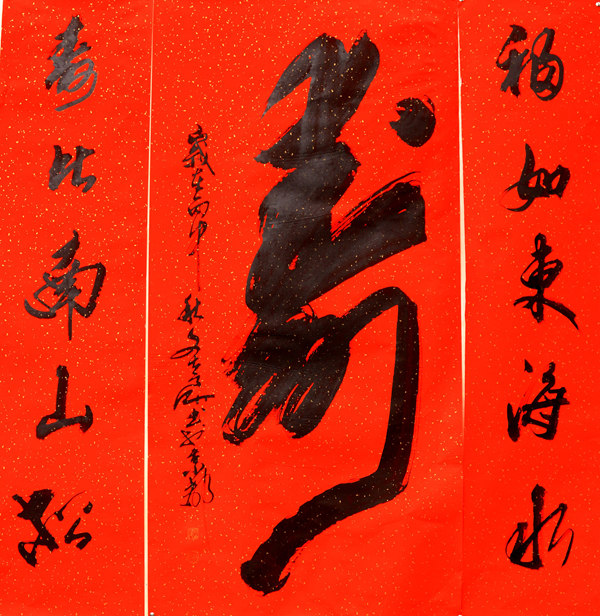 福如東海水
壽
歲在丙申秋
壽比南山松